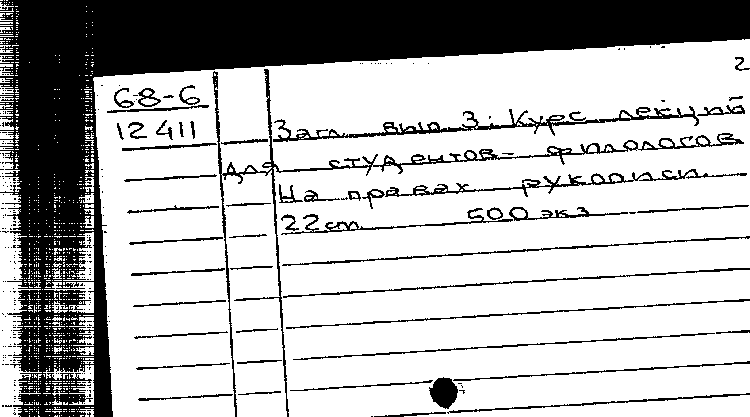 2
68-6
12411
Загл. вып. 3: Курс лекций
для студентов-филологов.
На правах рукописи.
22 cm. 500 экз